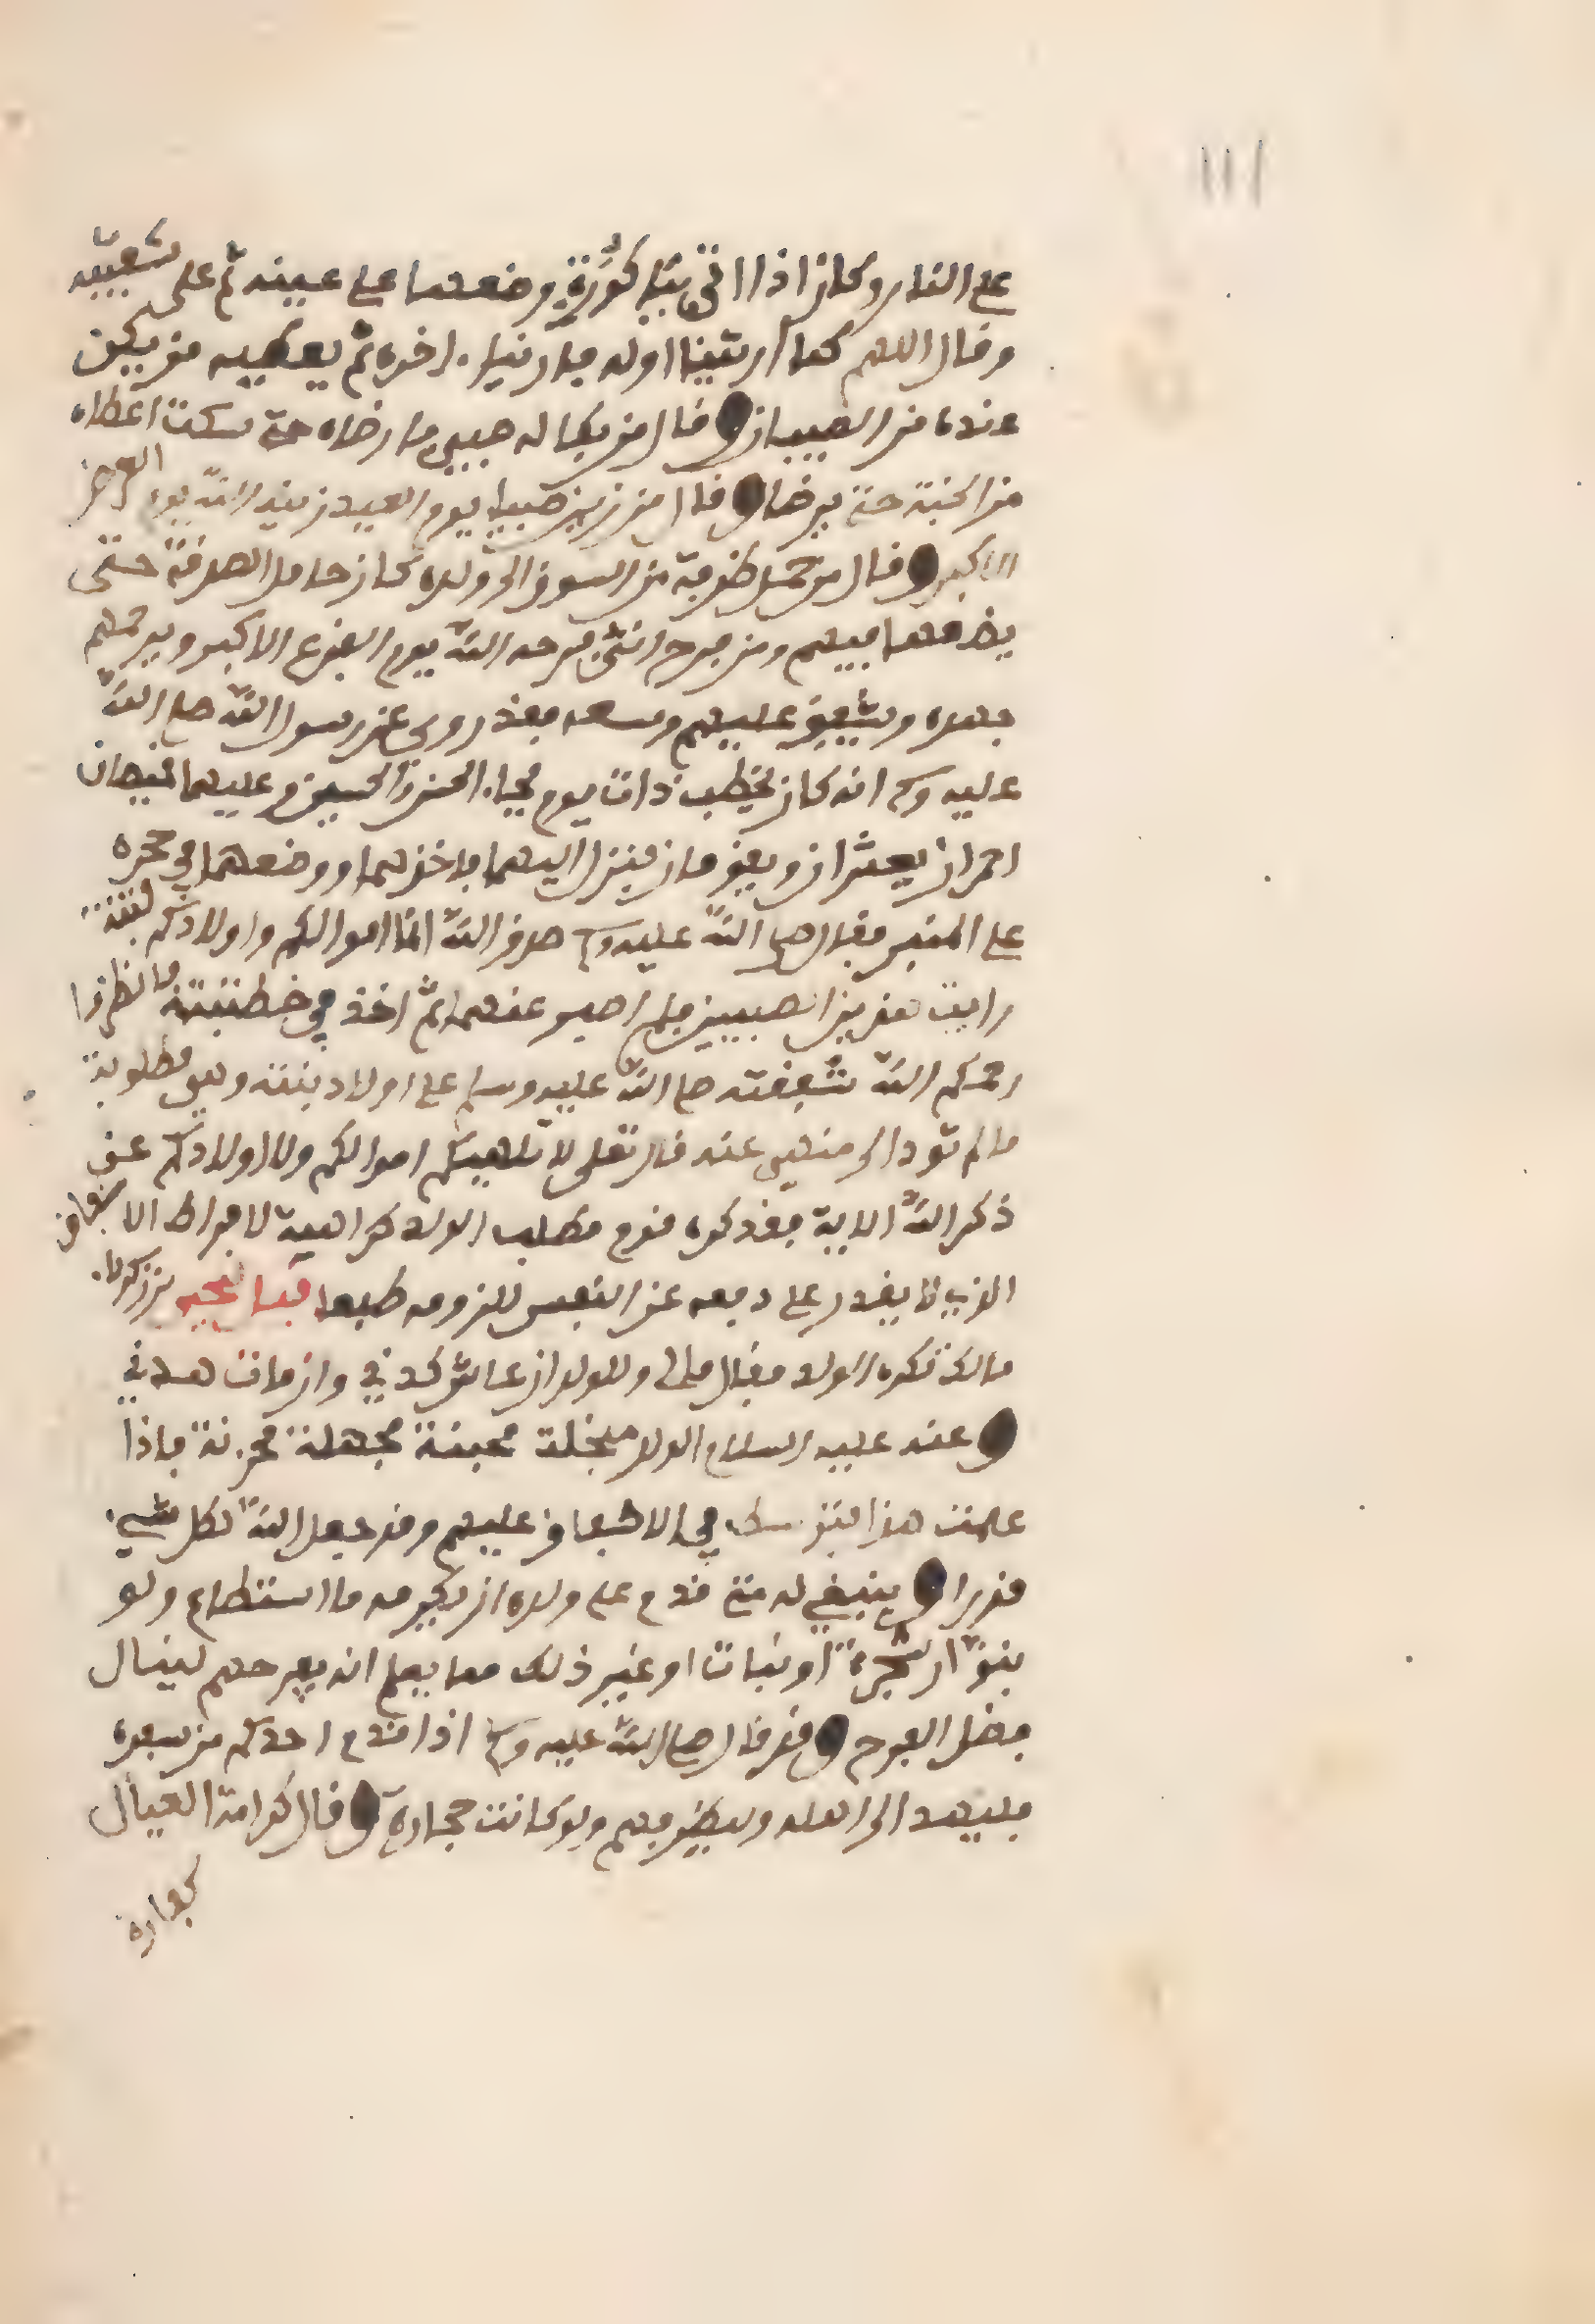 ١١١
على النار وكان اذا اتى بباكورة وضعها على عينه ثم على شفتيه
وقال اللهم كما اريتنا اوله فارنا اخره ثم يعطيه من يكن
عنده من الصبيان وقال من بكا له صبي فارضاه حتى سكت اعطاه
من الجنة حتى يرضا وقال من زين صبيا يوم العيد زينه الله يوم العرض
الاكبر وقال من حمل طرفة من السوق الى ولده كان حامل الصدقة حتى
يضعها فيهم ومن فرح انثى فرحه الله يوم الفزع الاكبر ويرحمهم
جهده ويشفق عليهم وسعه فقد روي عن رسول الله صلى الله
عليه وسلم انه كان يخطب ذات يوم فجاء الحسن والحسين وعليهما قميصان
احمران يعثران ويقومان فنزل اليهما فاخذهما ووضعهما في حجره
على المنبر فقال صلى الله عليه وسلم صدق الله انما اموالكم واولادكم فتنة
رايت هذين الصبيين فلم اصبر عنهما ثم اخذ في خطبته فانظروا
رحمكم الله شفقته صلى الله عليه وسلم على اولاد بنته وهي مطلوبة
ما لم تود الى منهي عنه قال تعلى لا تلهيكم اموالكم ولا اولادكم عن
ذكر الله الاية فقد كره قوم مطلب الولد كراهية لافراط الاشفاق
الذي لا يقدر على دفعه عن النفس للزومه طبعا قيل ليحيى بن زكريا
مالك تكره الولد فقال مالي وللولد ان عاش كدني وان مات هدني
وعنه عليه السلام الولد مبخلة مجبنة مجهلة محزنة فاذا
علمت هذا فتوسط في الاشفاق عليهم وقد جعل الله لكل شيء
قدرا وينبغي له متى قدم على ولده ان يكرمه ما استطاع ولو
بنوا او شجرة او نبات او غير ذلك مما يعلم انه يفرحهم لينال
فضل الفرح وقد قال صلى الله عليه وسلم اذا قدم احدكم من سفره
فليهد الى اهله وليطرفهم ولو كانت حجارة وقال كرامة العيال
كفارة